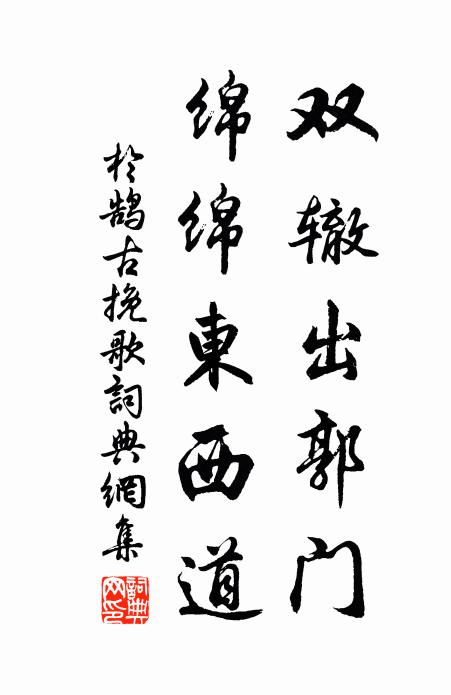 双辙出郭门
绵绵東西道
於鹄古挽歌詞典網集
詞典網印